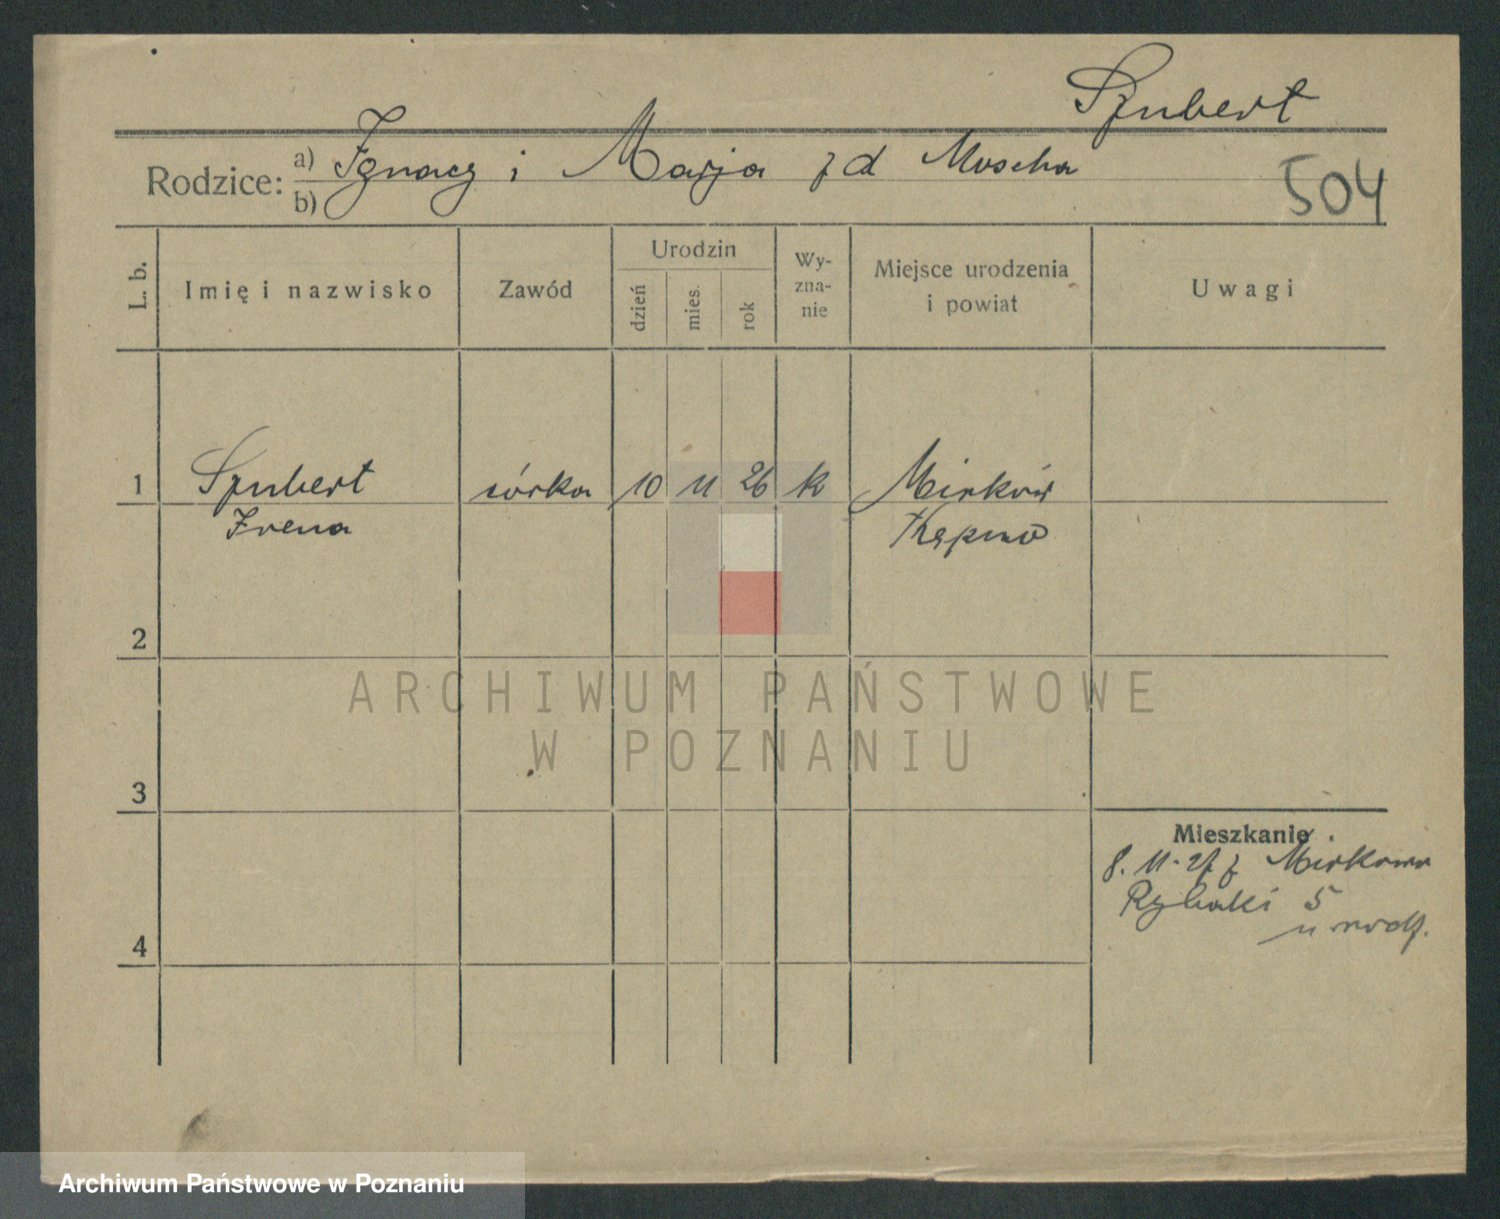 Szubert
Rodzice: a) Ignacy i Marja z d Muscha
b)
504
L. b.
Imię i nazwisko
Zawód
Urodzin
dzień
mies.
rok
Wy-
zna-
nie
Miejsce urodzenia
i powiat
Uwagi
1 Szubert córka 10 11 26 k Mirków
Irena Kępno
2
ARCHIWUM PAŃSTWOWE
W POZNANIU
3
Mieszkanie
8. 11. 27 z Mirkowa
Rybaki 5
4
u rodz.
Archiwum Państwowe w Poznaniu